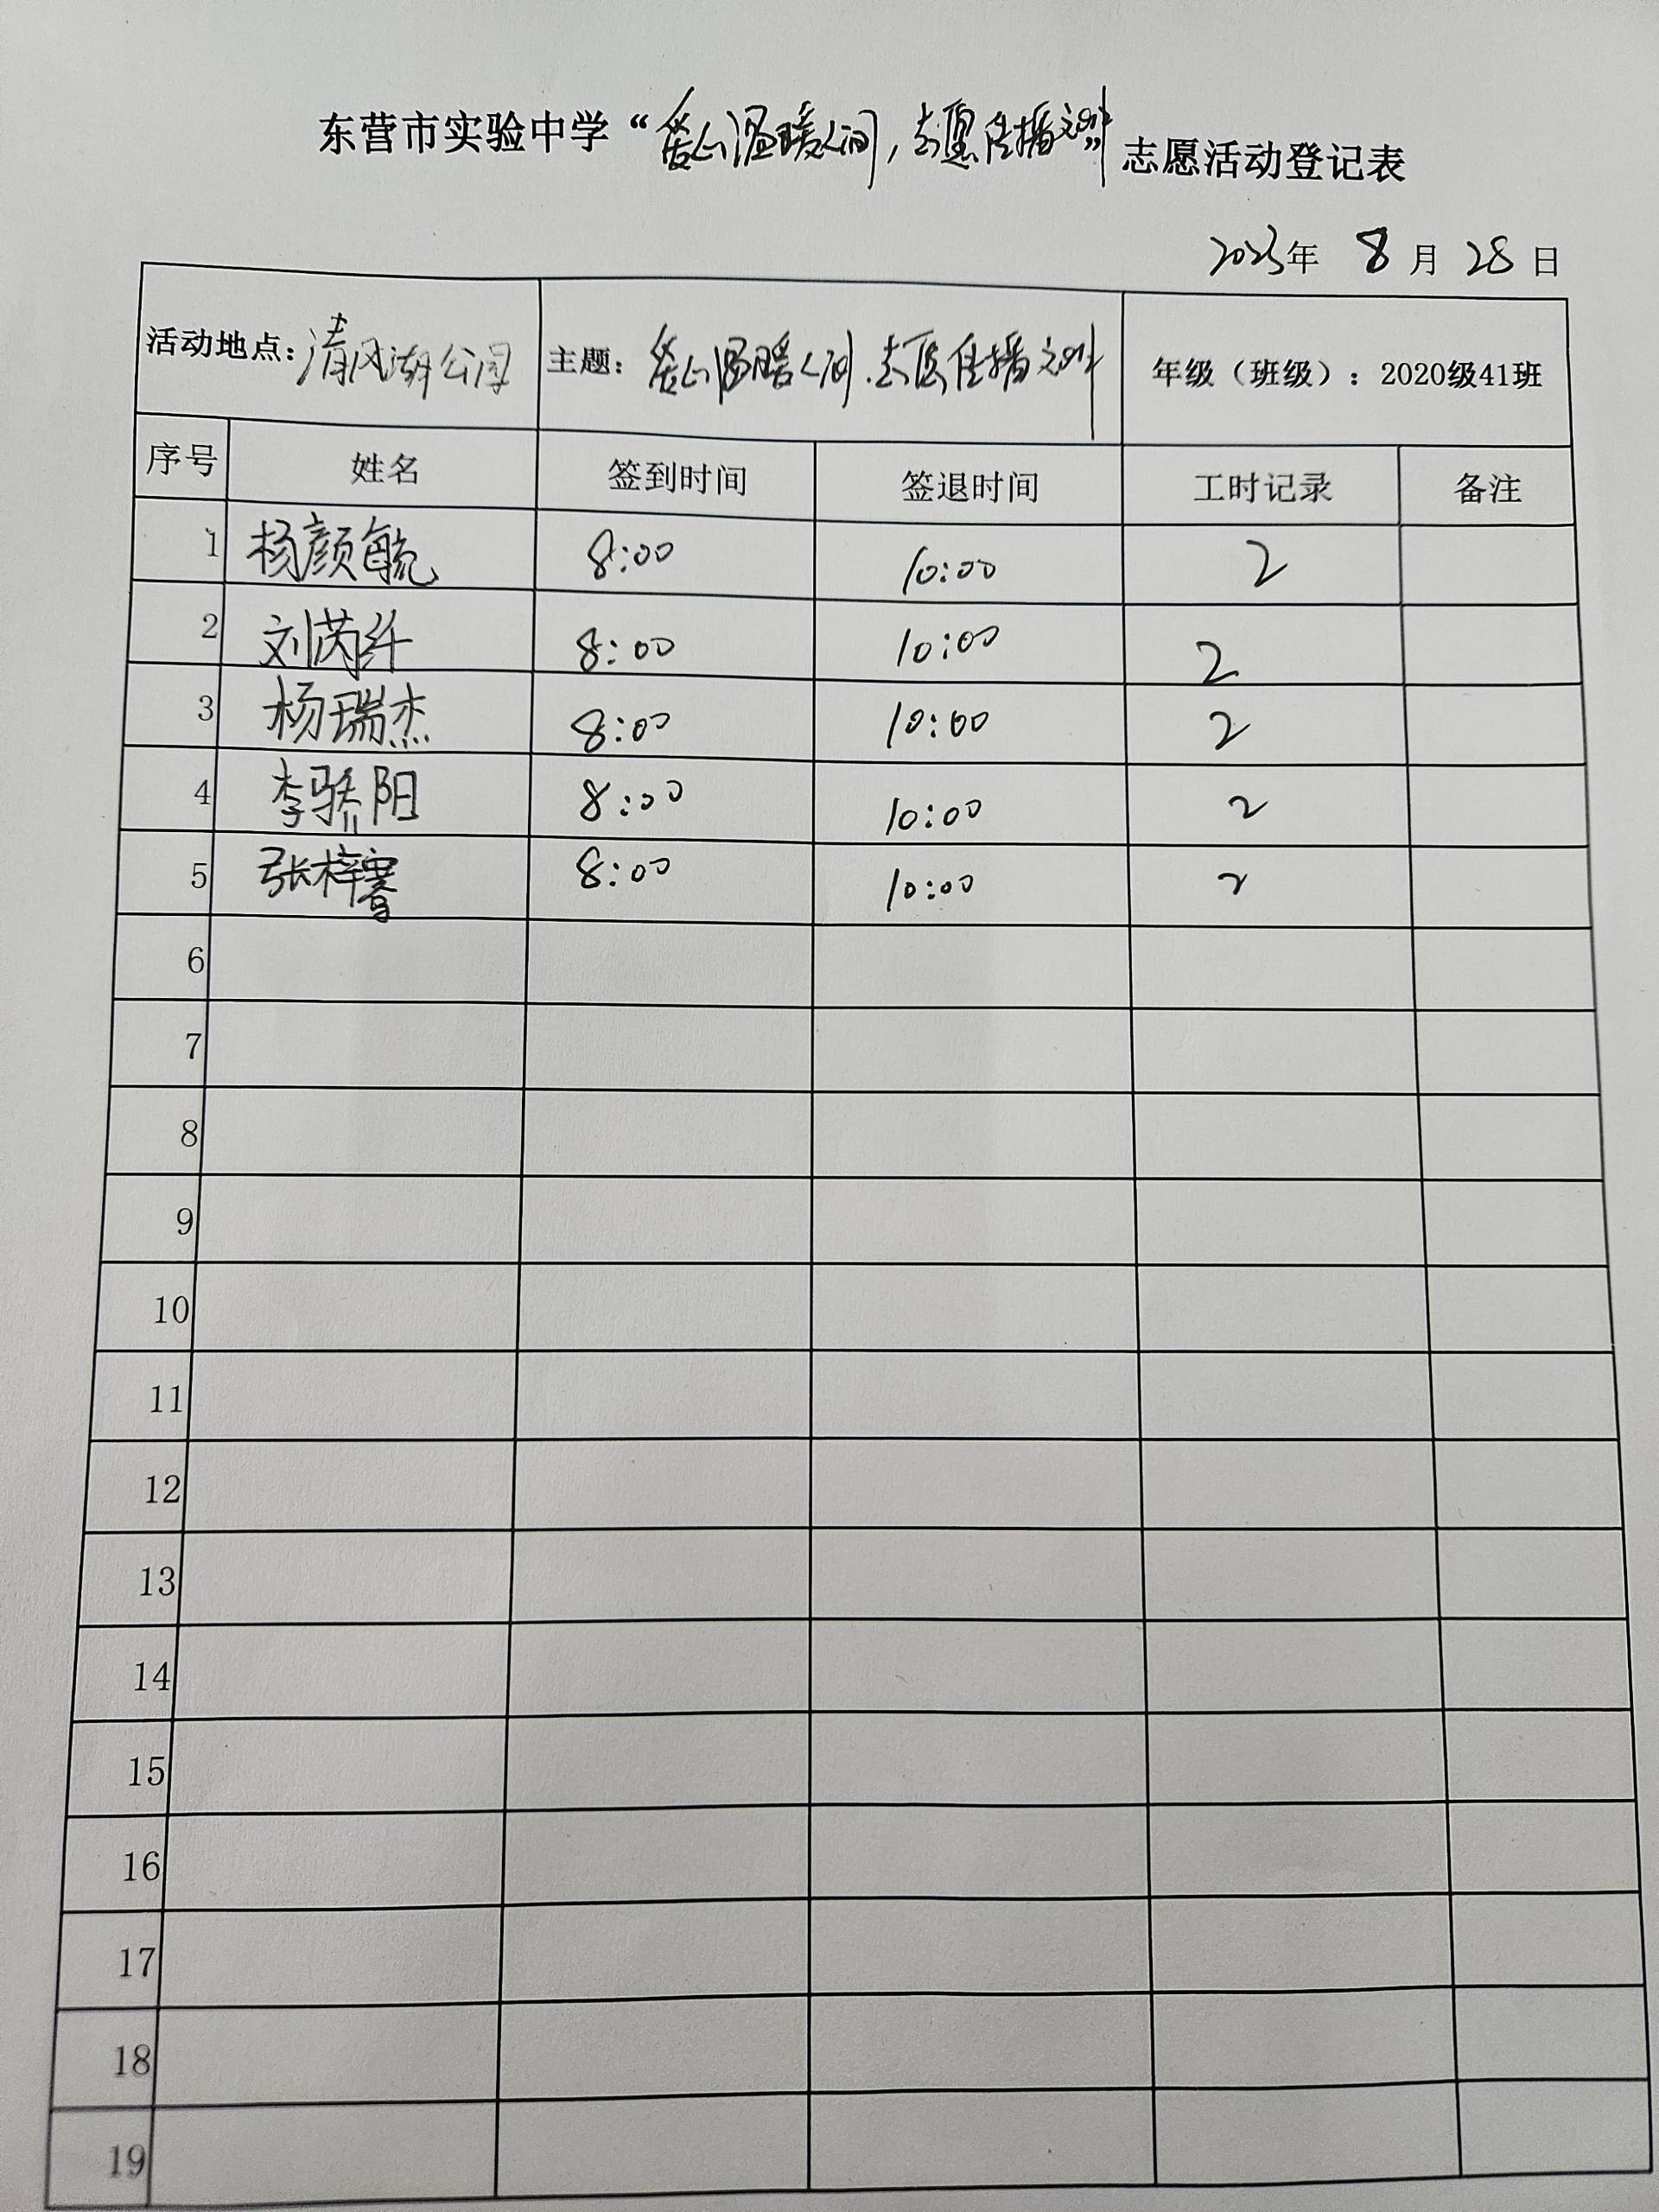 东营市实验中学“爱心温暖人间，志愿传播文明”志愿活动登记表
2023年 8月 28日
活动地点：清风湖公园 主题：爱心温暖人间，志愿传播文明 年级（班级）：2020级41班
序号 姓名 签到时间 签退时间 工时记录 备注
1 杨颜毓 8:00 10:00 2
2 刘芮纤 8:00 10:00 2
3 杨瑞杰 8:00 10:00 2
4 李骄阳 8:00 10:00 2
5 张梓 8:00 10:00 2
6
7
8
9
10
11
12
13
14
15
16
17
18
19